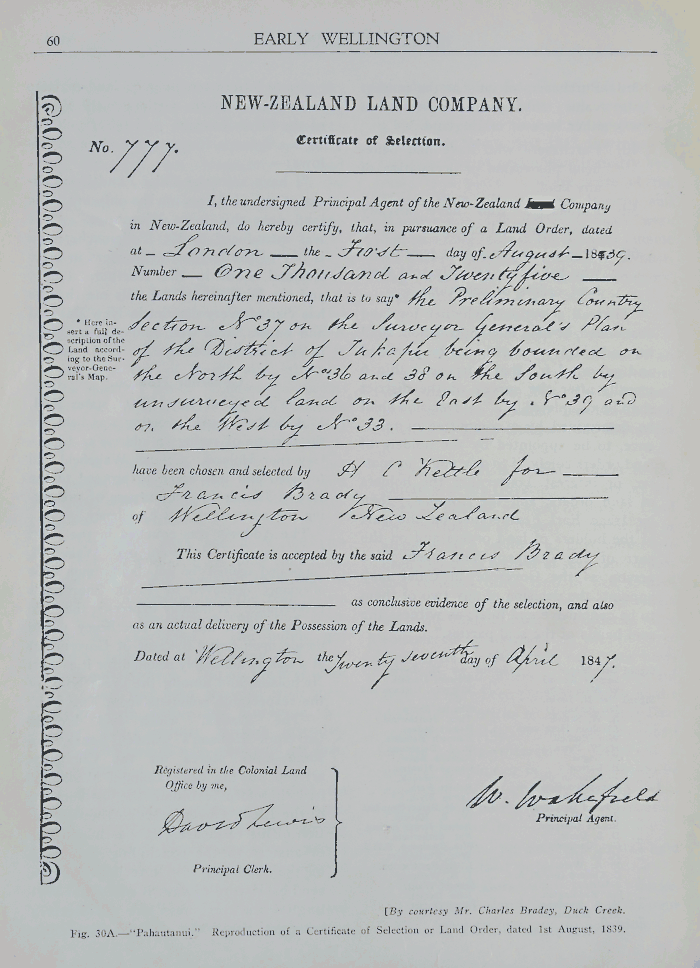 60
EARLY WELLINGTON
NEW-ZEALAND LAND COMPANY.
No. 777.
Certificate of Selection.
I, the undersigned Principal Agent of the New-Zealand Land Company
in New-Zealand, do hereby certify, that, in pursuance of a Land Order, dated
at London the First day of August 1839.
Number One Thousand and Twentyfive
the Lands hereinafter mentioned, that is to say* the Preliminary Country
Section No 37 on the Surveyor General's Plan
of the District of being bounded on
the North by No 36 and 38 on the South by
unsurveyed land on the East by No 39 and
on the West by No 33.
* Here in-
sert a full de-
scription of the
Land accord-
ing to the Sur-
veyor-Gene-
ral's Map.
have been chosen and selected by H C Kettle for
Francis Brady
of Wellington New Zealand
This Certificate is accepted by the said Francis Brady
as conclusive evidence of the selection, and also
as an actual delivery of the Possession of the Lands.
Dated at Wellington the Twenty seventh day of April 1847.
Registered in the Colonial Land
Office by me,
David Lewis
Principal Clerk.
W. Wakefield
Principal Agent.
[By courtesy Mr. Charles Bradey, Duck Creek.
Fig. 30A.—"Pahautanui." Reproduction of a Certificate of Selection or Land Order, dated 1st August, 1839.